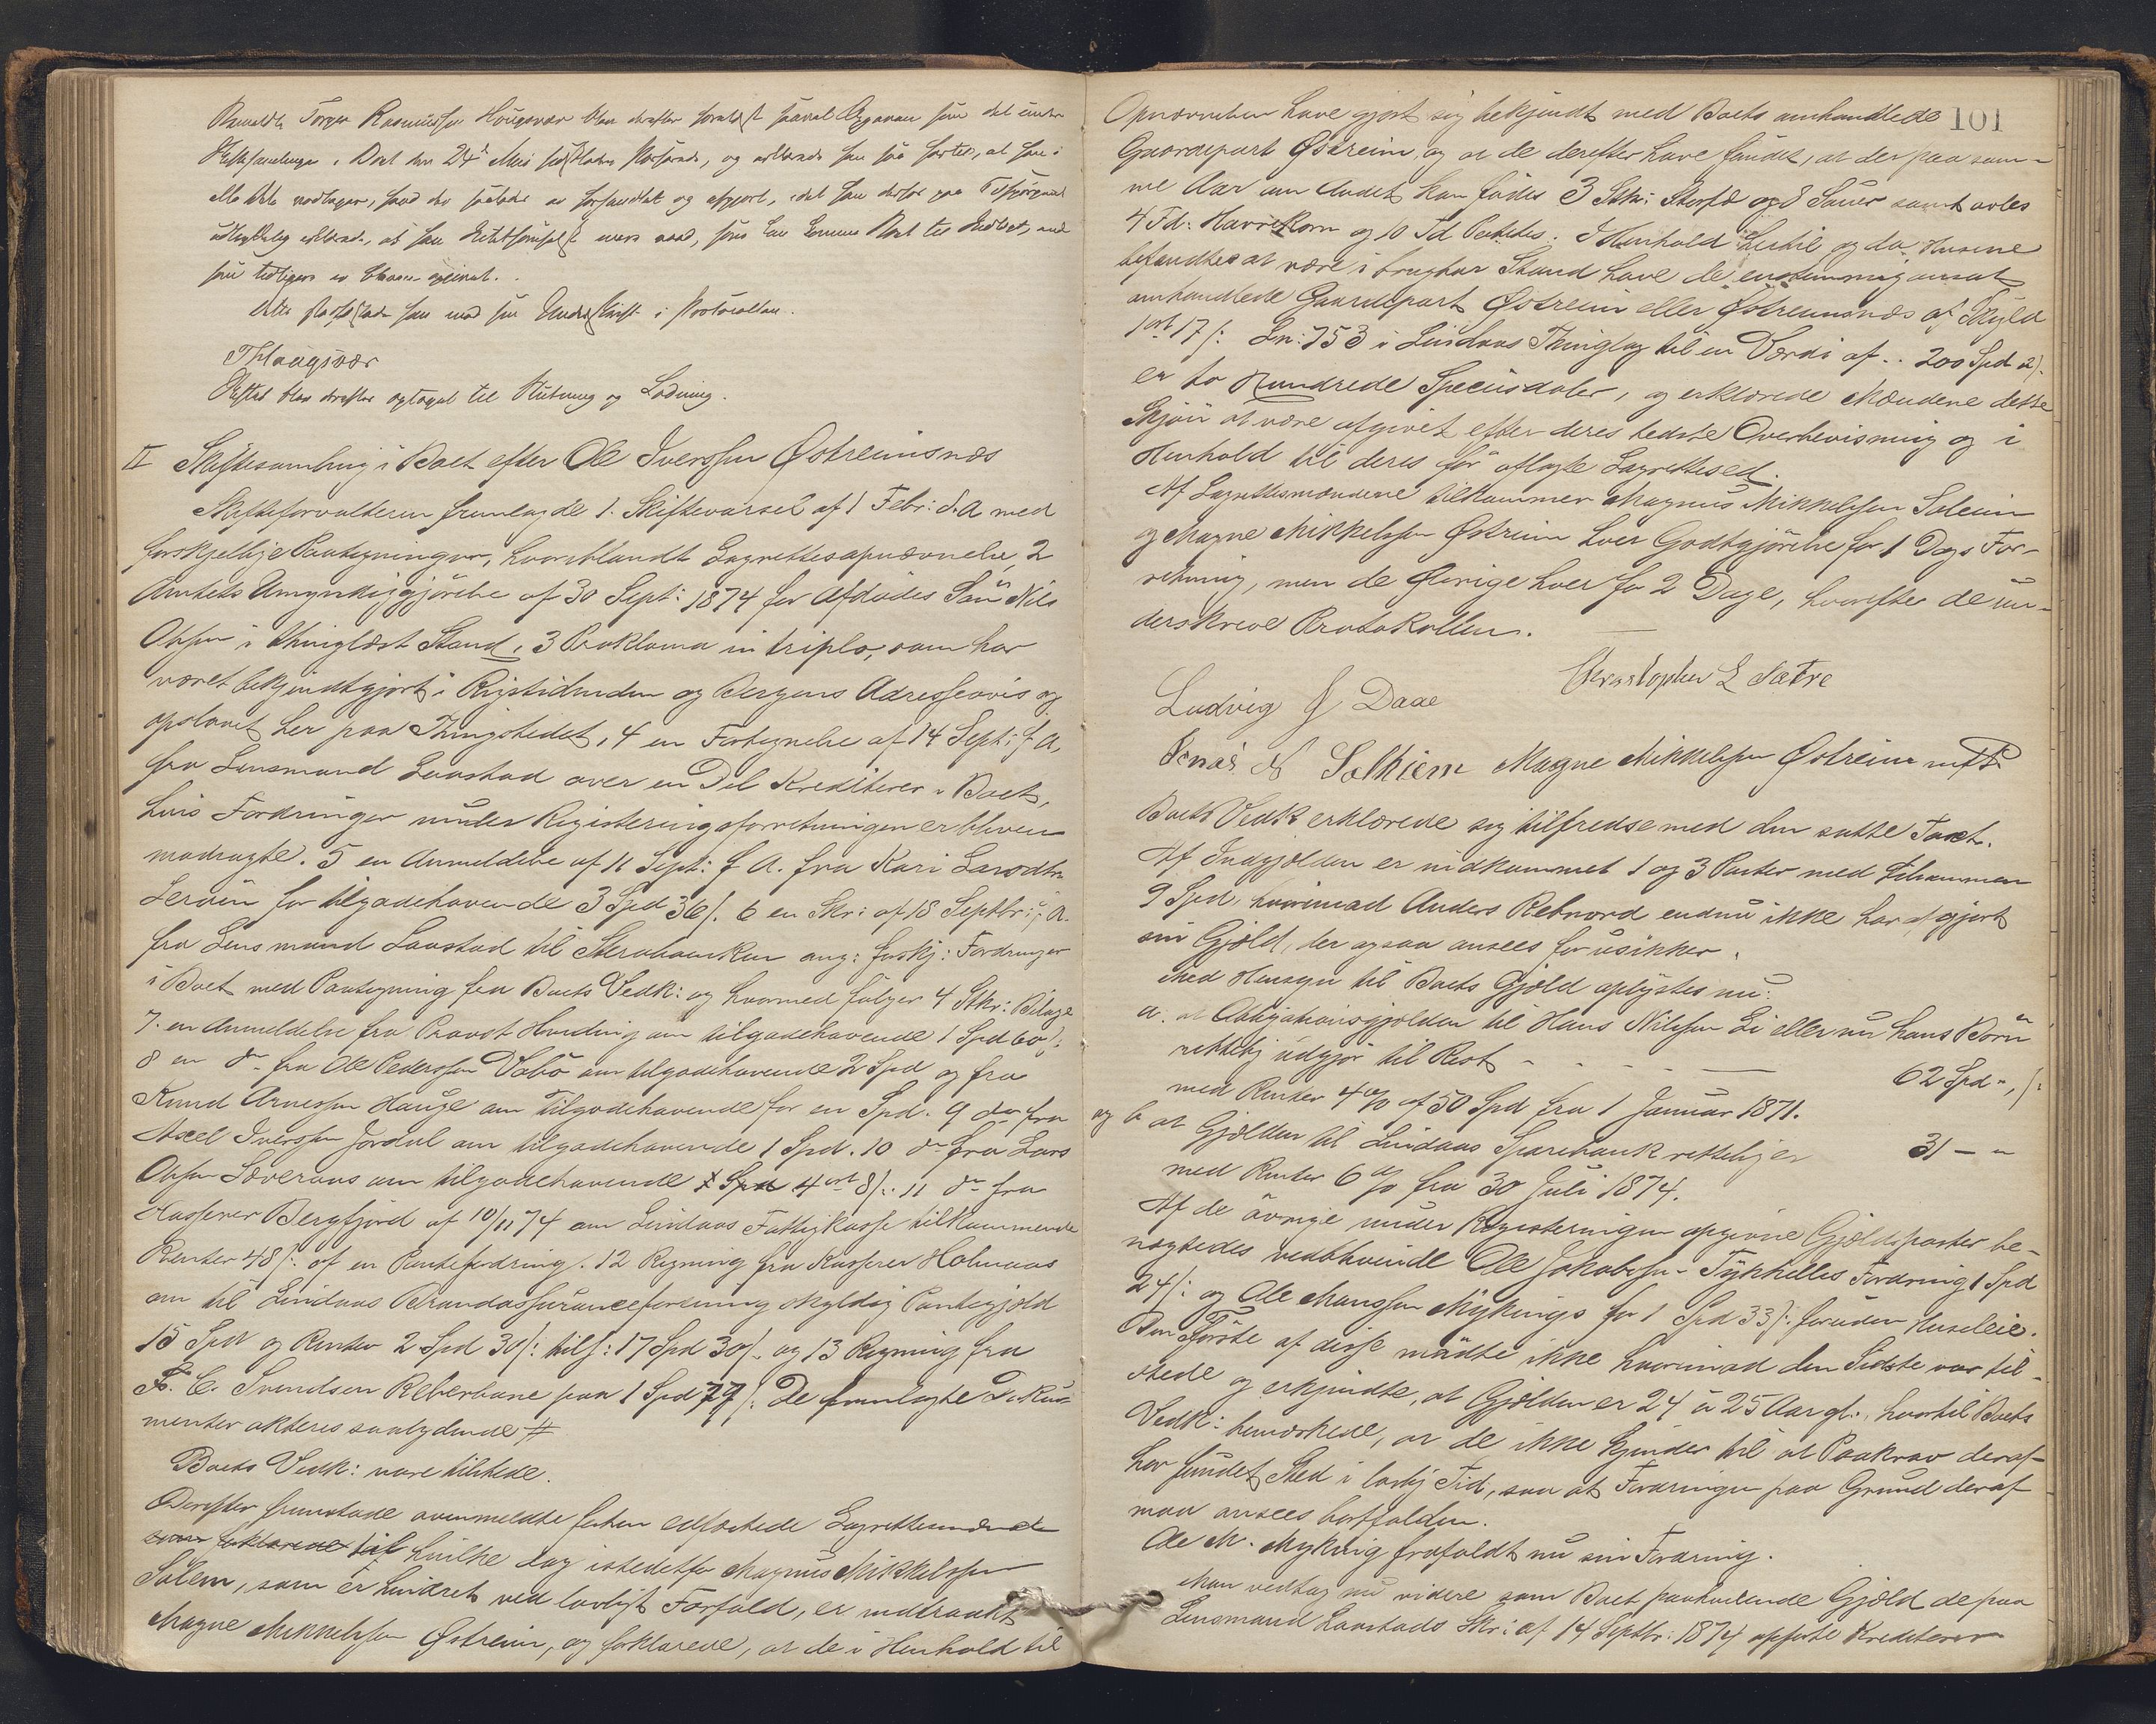 Rasmussen Hougsvær blev derefter forelæst saavel Opgaven som det under
Skiftesamlingen i Boet den 24de Mai og erklærede han sig at han i
alle Dele vedtager, hvad der saaledes er forhandlet og afgjort, idet han derhos paa Tilspørgsel
udtrykkelig erklærede, at han
som tidligere er bleven opgivet.
Dette han med sin Underskrift i Protocollen.
T Haagsvær
Skiftet blev derefter optaget til Slutning og Lodning.
II Skiftesamling i Boet efter Ole Iverssen Østreimsnæs
Skifteforvalteren fremlagde 1. Skiftevarsel af 1 Febr: d. A med
forskjellige Paategninger, hvoriblandt Lagrettesopnævnelse, 2
Amtets Umyndiggjørelse af 30 Sept: 1874 for Afdødes Søn Nils
Olssen i thinglæst Stand, 3 Proklama in triplo, som har
været bekjendtgjort i Rigstidenden og Bergens Adresseavis og
opslaaet her paa Thingstedet, 4 en Fortegnelse af 14 Sept: f. A,
fra Lensmand Laastad over en Del Kreditorer i Boet,
hvis Fordringer under Registreringsforretningen er bleven
modtagte. 5 en Anmeldelse af 11 Sept: f. A. fra Kari Larsdtr
for tilgodehavende 3 Spd 36/. 6 en Skr: af 18 Septbr: f. A.
fra Lensmand Laastad til Skrabanken ang: forskj: Fordringer
i Boet med Paategning fra Boets Vedk: og hvormed følger 4 Stkr: Bilage
7. en Anmeldelse fra Provst Hvidding om tilgodehavende 1 Spd 60/:
8 en do fra Ole Pederssen Vabø om tilgodehavende 2 Spd og fra
Knud Arnessen Hauge om Tilgodehavende for en Spd. 9 do fra
Axel Iverssen Jordal om tilgodehavende 1 Spd. 10 do fra Lars
Olssen Sæveraas om tilgodehavende 4 ort 8/: 11 do fra
Kasserer Bergfjord af 10/11 74 om Lindaas Fattigkasse tilkommende
Renter 48/: af en Pantefordring. 12 Regning fra Kasserer Holmaas
om til Lindaas Brandassuranceforening skyldig Pantegjæld
15 Spd og Renter 2 Spd 30/: tils: 17 Spd 30/. og 13 Regning fra
F. C. Svendsen Reberbane paa 1 Spd 79/: De fremlagte Doku-
menter akteres saalydende #
Boets Vedk: vare tilstede.
Derefter fremstode ovenmeldte forhen edfæstede Lagrettesmænd
hvilke dog istedetfor Magnus Mikkelssen
Solem, som er hindret ved lovligt Forfald, er indtraadt
Magne Mikkelssen Østreim, og forklarede, at de i Henhold til
101
Opnævnelsen have gjort sig bekjendt med Boets omhandlede
Gaardepart Østreim, og at de derefter have fundet, at der paa sam-
me Aar om Andet kan fødes 3 Stkr: Storfæ og 8 Sauer samt avles
4 Td. Havrekorn og 10 Td Potetes. I Henhold hertil og da Husene
befandtes at være i brugbar Stand have de enstemmig ansat
omhandlede Gaardepart Østreim eller Østreimsnæs af Skyld
1 ort 17/: Ln: 753 i Lindaas Thinglag til en Værdi af .. 200 Spd a):
er to Hundrede Speciesdaler, og erklærede Mændene dette
Skjøn at være afgivet efter deres bedste Overbevisning og i
Henhold til deres før aflagte Lagrettesed.
Af Lagrettesmændene tilkommer Magnus Mikkelssen Solem
og Magne Mikkelssen Østreim hver Godtgjørelse for 1 Dags For-
retning, men de Øvrige hver for 2 Dage, hvorefter de un-
derskreve Protokollen.
Christopher L Sætre
Ludvig J Daae
Jonas N Solhiem Magne Mikkelssen Østreim m f P
Boets Vedk erklærede sig tilfredse med den satte Taxt.
Af Indgjælden er indkommet 1 og 3 Poster med tilsammen
9 Spd, hvorimod Anders Rebnord endnu ikke har afgjort
sin Gjæld, der ogsaa ansees for usikker.
Med Hensyn til Boets Gjæld oplystes nu:
a. at Obligationsgjælden til Hans Nilssen Ei eller nu hans Børn
rettelig udgjør til Rest - - - - 62 Spd ",/:
med Renter 4 % af 50 Spd fra 1 Januar 1871.
og b at Gjælden til Lindaas Sparebank rettelig er 31 - "
med Renter 6 % fra 30 Juli 1874.
Af de øvrige under Registreringen opgivne Gjældsposter be-
nægtedes vedblivende Ole Jakobssen Tykkelles Fordring 1 Spd
24/: og Ole Monssen Mykings for 1 Spd 33/: foruden Husleie.
Den Første af disse mødte ikke hvorimod den Sidste var til-
stede og erkjendte, at Gjælden er 24 à 25 Aar gl:, hvortil Boets
Vedk: bemærkede, at de ikke kjender til at Paakrav deraf
har fundet Sted i lovlig Tid, saa at Fordringen paa Grund deraf
maa ansees bortfalden.
Ole M. Myking frafaldt nu sin Fordring.
Man vedtog nu videre som Boet paahvilende Gjæld de paa
Lensmand Laastads Skr: af 14 Septbr: 1874 opførte Kreditorer